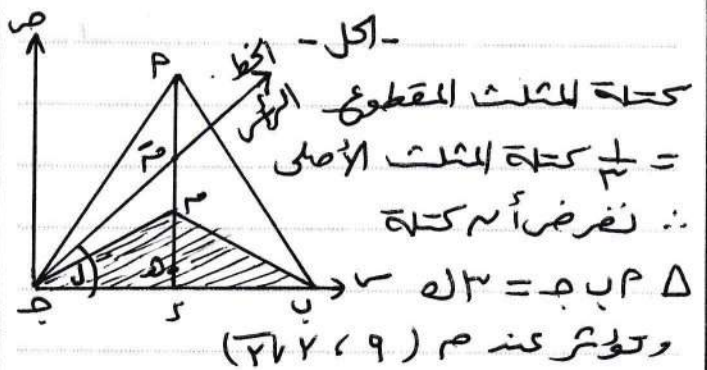 - الحل -
كتلة المثلث المقطوع
= ١/٣ كتلة المثلث الأصلى
∴ نفرض أن كتلة
Δ م ب جـ = ٣ ك
وتؤثر عند م (٩ ، ٧√٢)
ص
الخط
الرأسى
م
مَ
م
ل
هـ
جـ
ء
ب
س